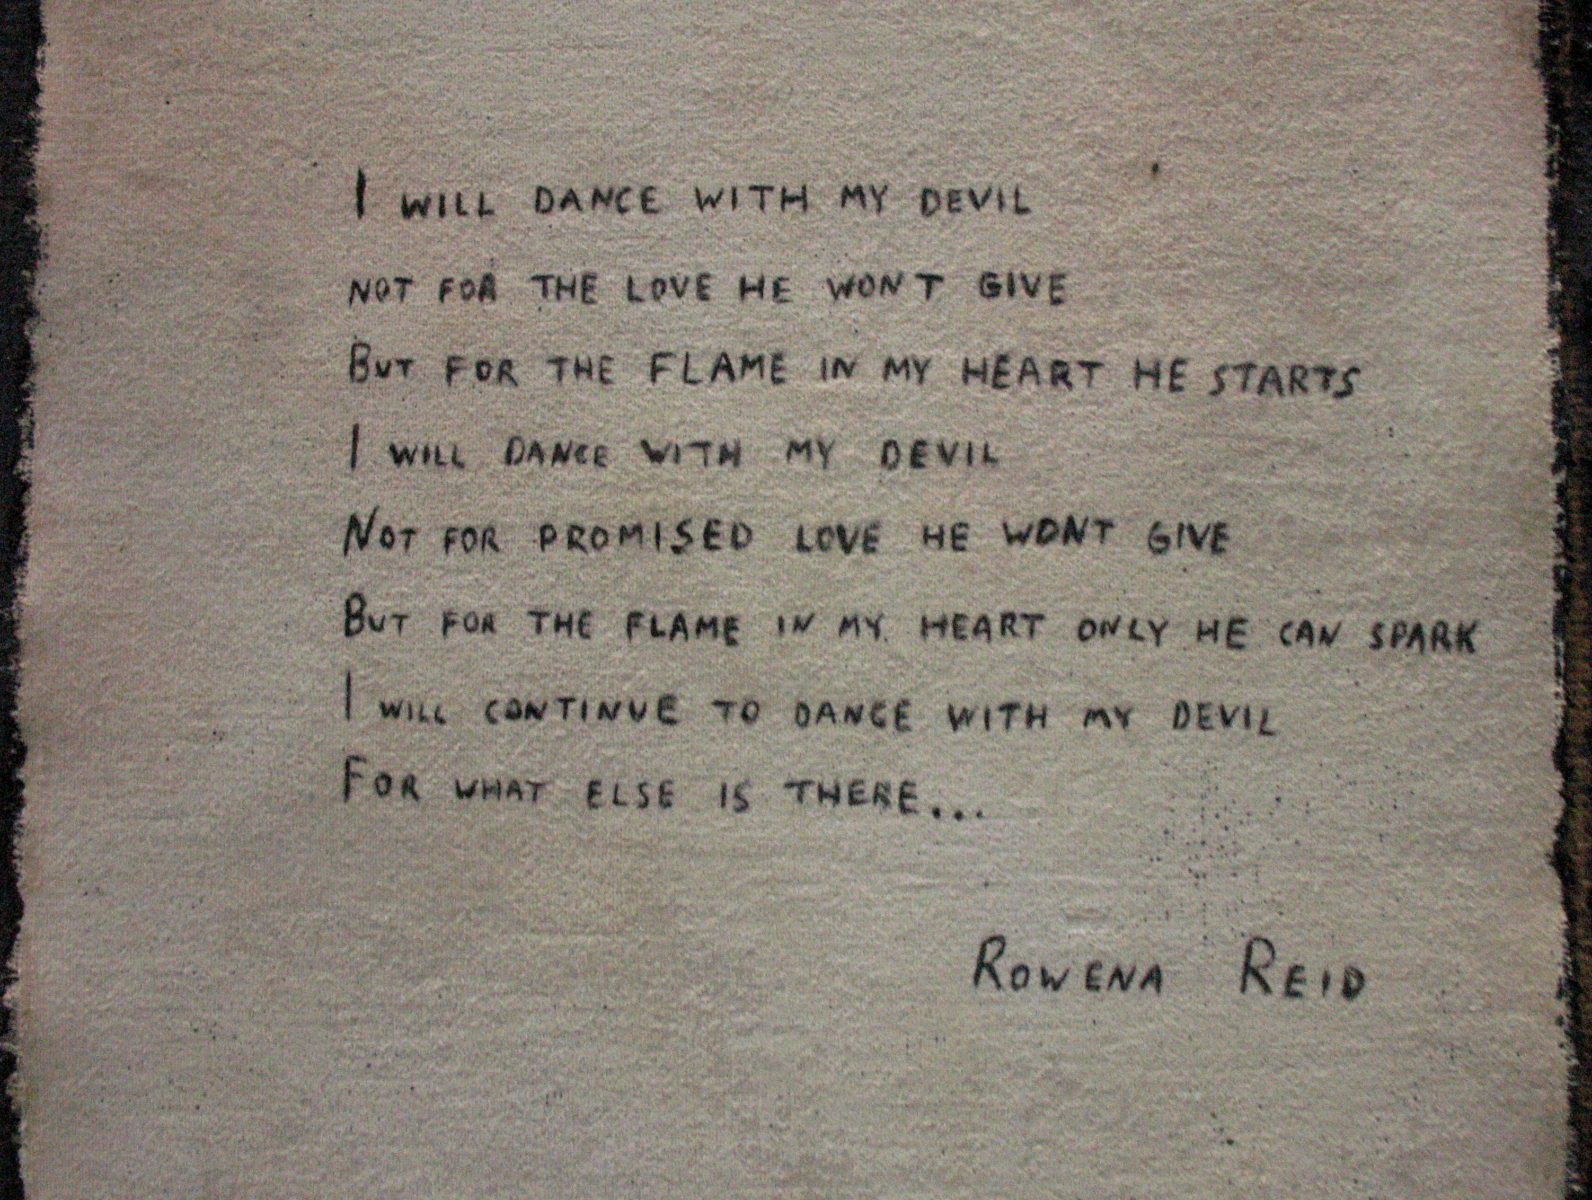 I WILL DANCE WITH MY DEVIL
NOT FOR THE LOVE HE WONT GIVE
BUT FOR THE FLAME IN MY HEART HE STARTS
I WILL DANCE WITH MY DEVIL
NOT FOR PROMISED LOVE HE WONT GIVE
BUT FOR THE FLAME IN MY HEART ONLY HE CAN SPARK
I WILL CONTINUE TO DANCE WITH MY DEVIL
FOR WHAT ELSE IS THERE...
ROWENA REID